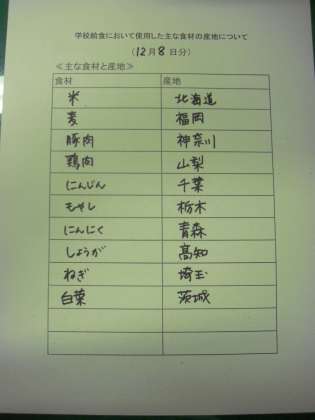 学校給食において使用した主な食材の産地について
(12月8日分)
≪主な食材と産地≫
食材 産地
米 北海道
麦 福岡
豚肉 神奈川
鶏肉 山梨
にんじん 千葉
もやし 栃木
にんにく 青森
しょうが 高知
ねぎ 埼玉
白菜 茨城